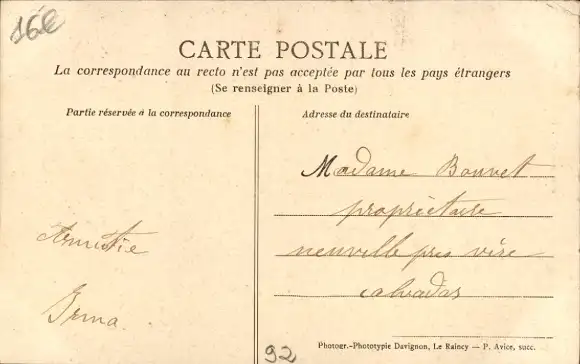 16e
CARTE POSTALE
La correspondance au recto n'est pas acceptée par tous les pays étrangers
(Se renseigner à la Poste)
Partie réservée à la correspondance
Adresse du destinataire
Madame Bouvet
propriétaire
neuville pres vire
calvados
Amitie
Irma.
92
Photogr.-Phototypie Davignon, Le Raincy — P. Avice, succ.